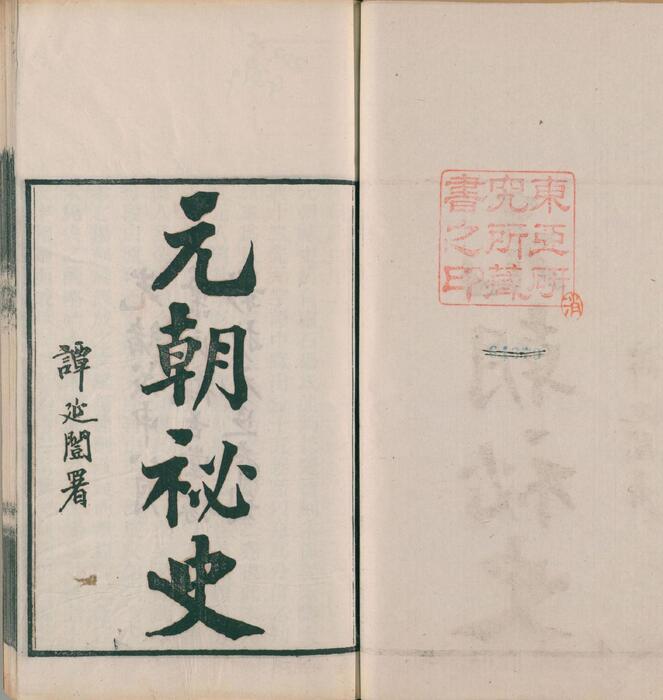 東亞研
究所藏
書之印
消
元朝祕史
譚延闓署